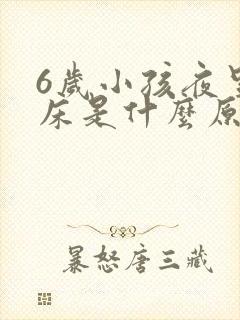 6歲小孩夜
床是什麼原
暴怒唐三藏